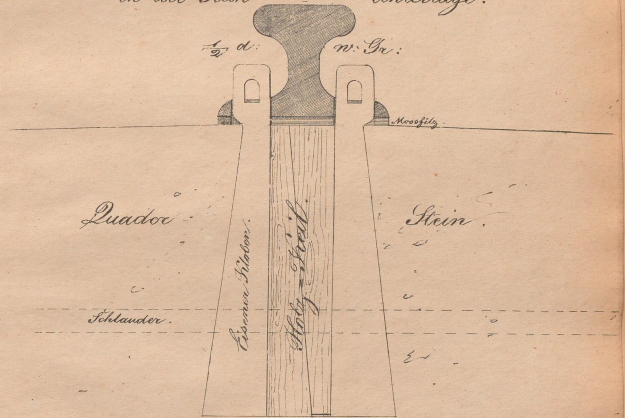 in der Stein
½ d: n: Gr:
Moosfilz
Quader Stein.
Eiserner Kloben.
Holz = Keil.
Schlauder.